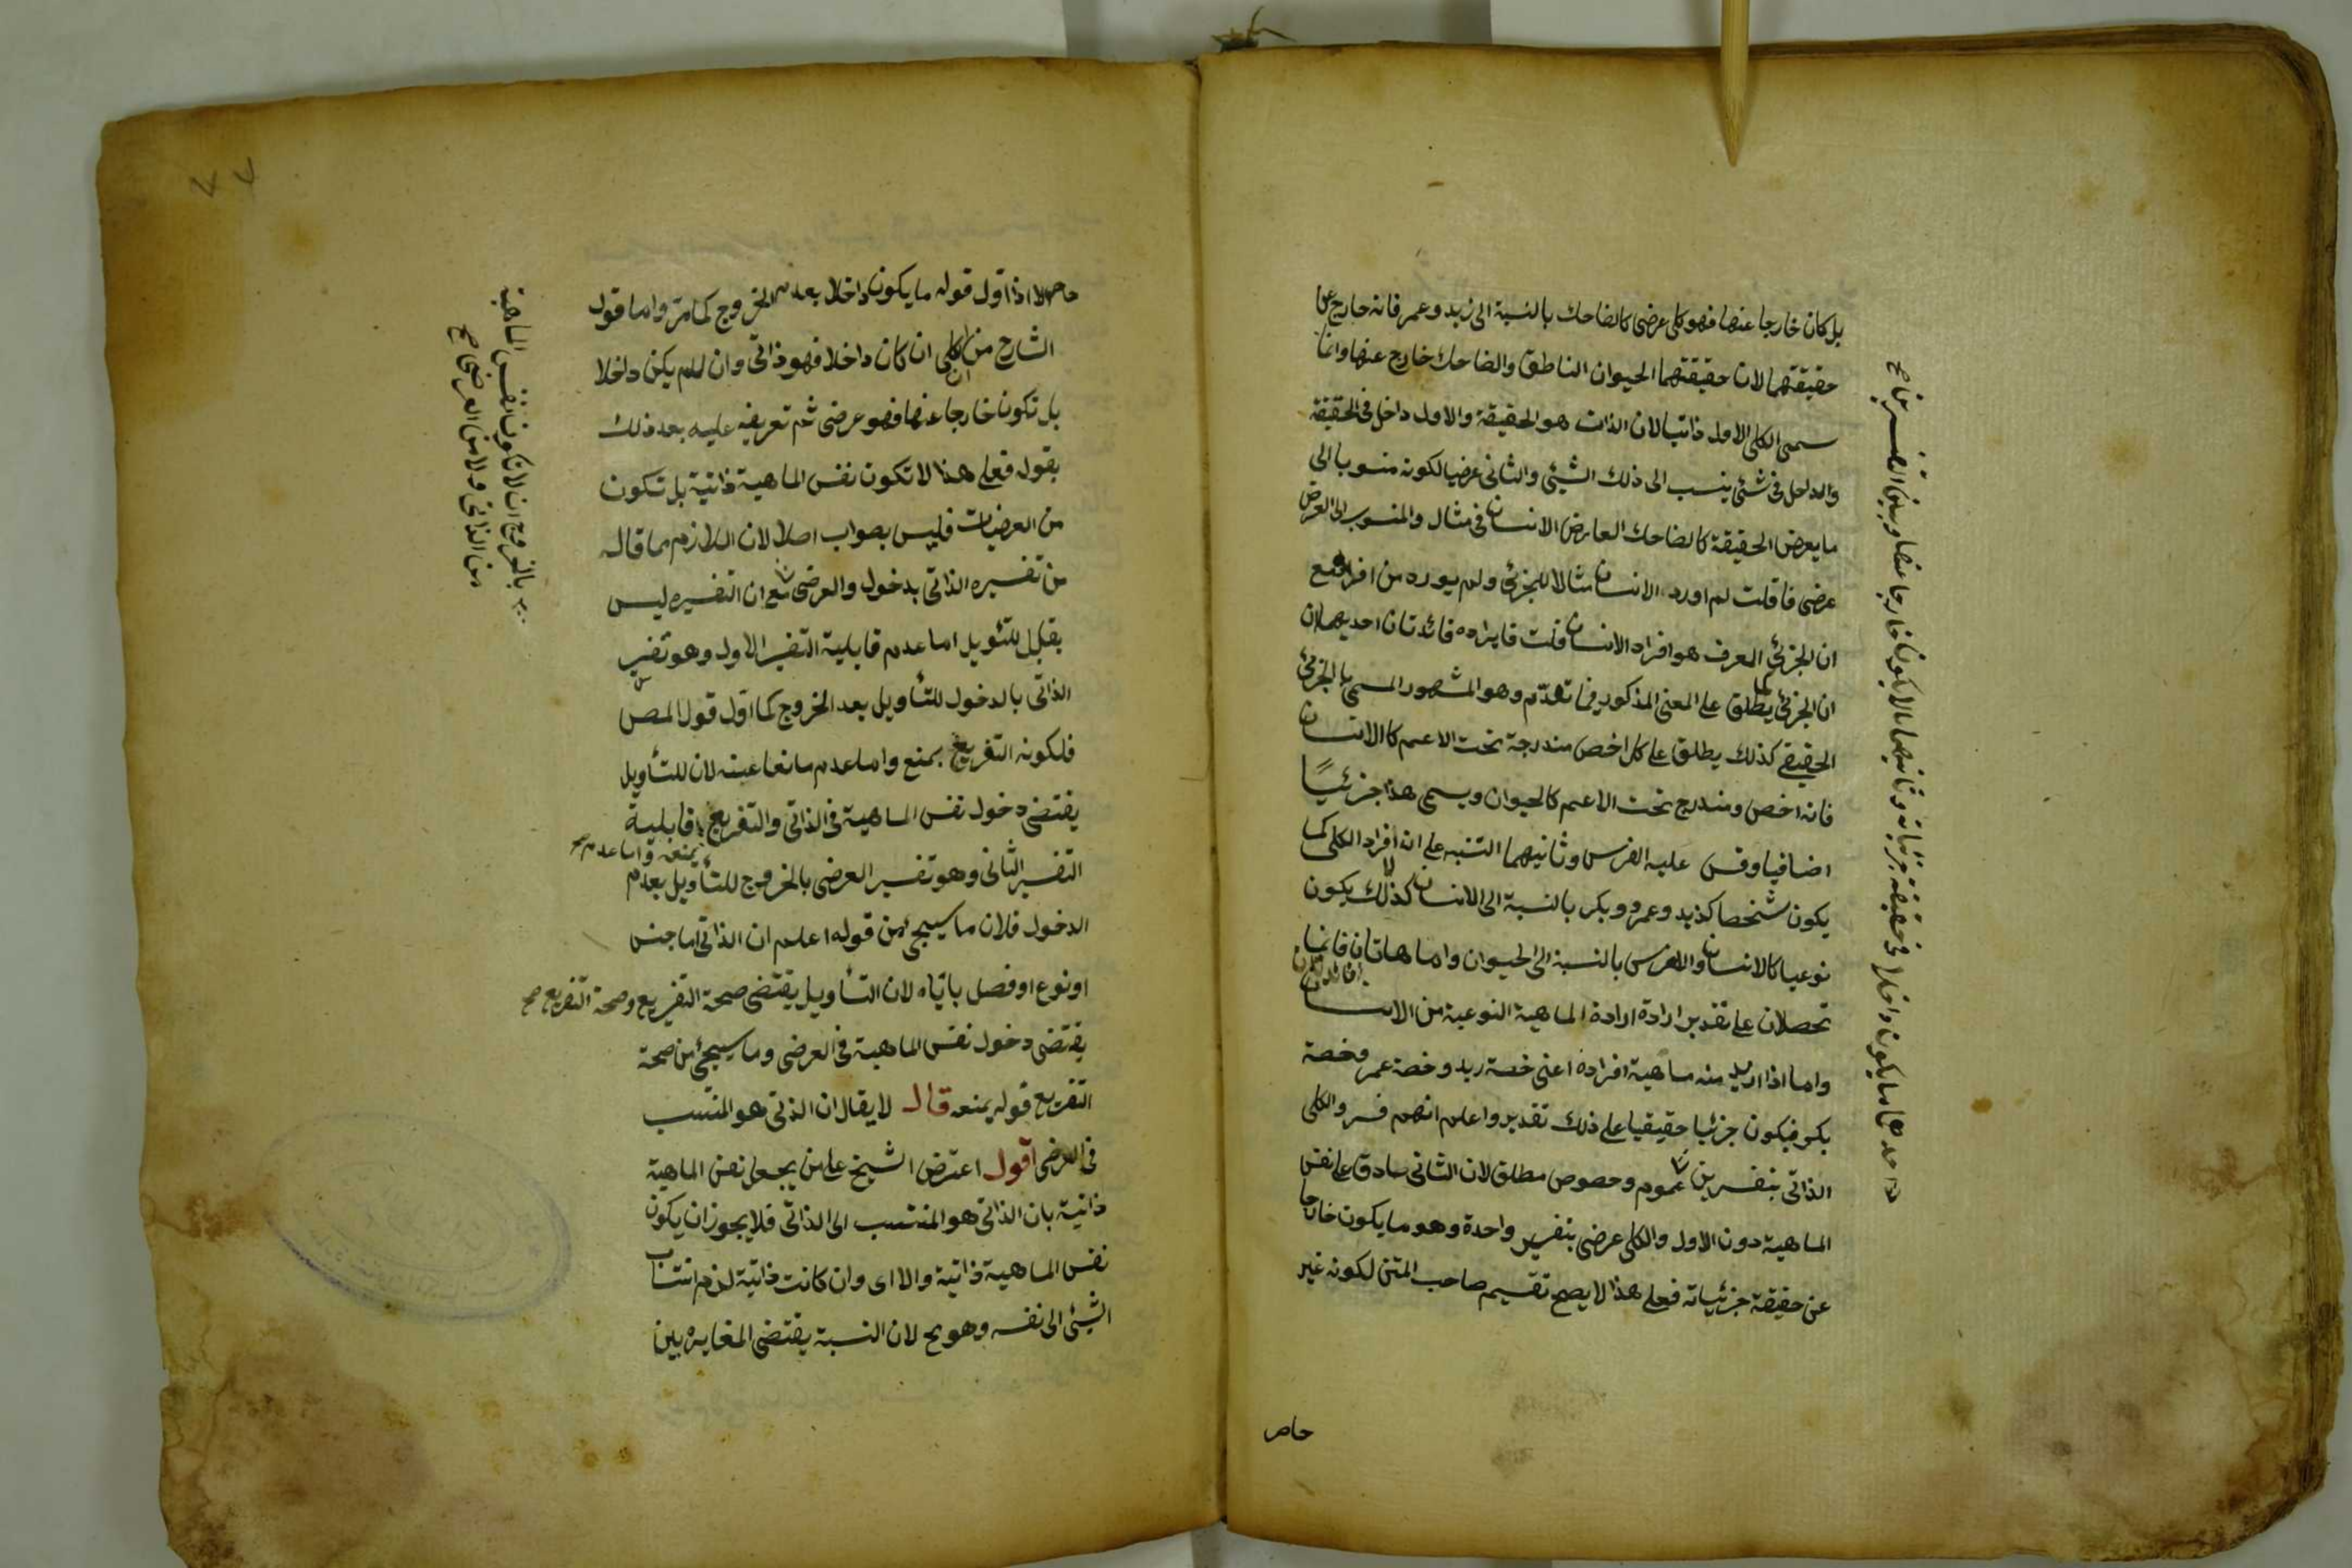 بل كان خارجا عنها فهو كلى عرضى كالضاحك بالنسبة الى زيد وعمر فانه خارج عن
حقيقتهما لان حقيقتهما الحيوان الناطق والضاحك خارج عنها وانما
سمى الكلى الاول ذاتيا لان الذات هو الحقيقة والاول داخل فى الحقيقة
والداخل فى شئ ينسب الى ذلك الشيئ والثانى عرضيا لكونه منسوبا الى
ما يعرض الحقيقة كالضاحك العارض الانسان فى مثال والمنسوب الى العرض
عرضى فاقلت لم اورد الانسان مثالا للجزئى ولم يورده من افراده مع
ان الجزئى المعرف هو افراد الانسان قلت فايراده فائدتان احديهما ان
ان الجزئى كما يطلق على المعنى المذكور فيما تقدم وهو المشهور المسمى بالجزئى
الحقيقى كذلك يطلق على كل اخص مندرجة تحت الاعم كالانسان
فانه اخص ومندرج تحت الاعم كالحيوان ويسمى هذا جزئيًا
اضافيا وقس عليه الفرس وثانيهما التنبه على ان افراد الكلى كما
يكون شخصا كذيد وعمرو وبكر بالنسبة الى الانسان كذلك يكون
نوعيا كالانسان والفرس بالنسبة الى الحيوان واما هاتان فانما
تحصلان على تقدير ارادة ارادة الماهية النوعية من الانسان
واما اذا اريد منه ماهية افراده اعنى خصة زيد وخصة عمر وخصة
بكر فيكون جزئيا حقيقيا على ذلك تقدير واعلم انهم فسر والكلى
الذاتى بتفسرين عموم وخصوص مطلق لان الثانى صادق على نفس
الماهية دون الاول والكلى عرضى بتفسير واحدة وهو ما يكون خارجا
عن حقيقة جزئياته فعلى هذا لا يصح تقسيم صاحب المتن لكونه غير
حاص
احدهما ما يكون داخلا فى حقيقة جزئياته وثانيهما ما لا يكون خارجا عنها وبين التفسرين صح
حاصلا اذا اول قوله ما يكون داخلا بعدم الخروج كما مر واما قول
الشارح من ان الكلى ان كان داخلا فهو ذاتى وان لم يكن داخلا
بل تكون خارجا عنها فهو عرضى ثم تعريفه عليه بعد ذلك
بقوله فعلى هذا لا تكون نفس الماهية ذاتية بل تكون
من العرضيات فليس بصواب اصلا لان اللازم مما قاله
من تفسيره الذاتى بدخول والعرضى مع ان التفسيره ليس
بقابل للتئويل اما عدم قابلية التفسير الاول وهو تفسير
الذاتى بالدخول للتأويل بعد الخروج كما اول قول المص
فلكونه التفريع بمنع واما عدم مانعا عينه لان للتأويل
يقتضى دخول نفس الماهية فى الذاتى والتفريع قابلية
يمنعه واما عدم صح
التفسير الثانى وهو تفسير العرضى بالخروج للتأويل بعدم
الدخول فلان ما سيجئ من قوله اعلم ان الذاتى اما جنس
او نوع او فصل باتّاه لان التأويل يقتضى صحة التفريع وصحة التفريع صح
يقتضى دخول نفس الماهية فى العرضى وما سيجئ من صحة
التفريع قوله يمنعه قال لا يقال ان الذتى هو المنتسب
فى العرضى اقول اعترض الشيخ على من يجعل نفس الماهية
ذاتية بان الذاتى هو المنتسب الى الذاتى فلا يجوز ان يكون
نفس الماهية ذاتية والا اى وان كانت ذاتية لذم انتساب
الشيئ الى نفسه وهو مح لان النسبة يقتضى المغايرة بين
بالخروج ان لا تكون نفس الماهية
من الذاتى ولا من العرضى صح
٧٧